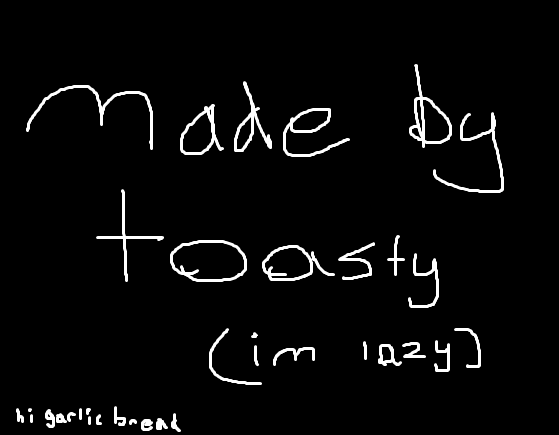 made by
toasty
(im lazy)
hi garlic bread